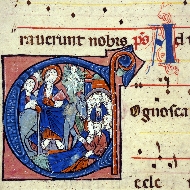 rauerunt nobis ps A d
ognosca
tele